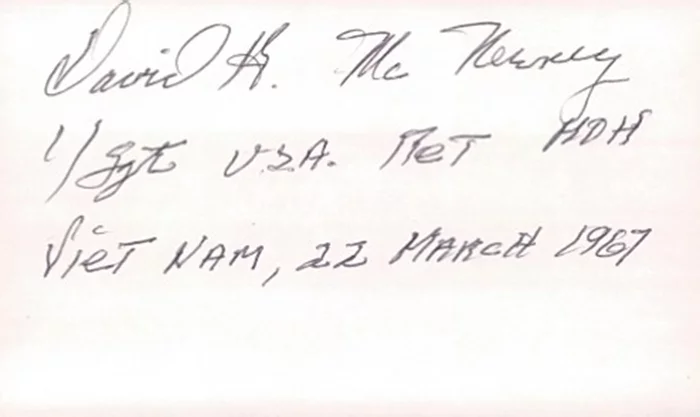 David H. McNerney
1/Sgt U.S.A. Ret MOH
Viet Nam, 22 March 1967